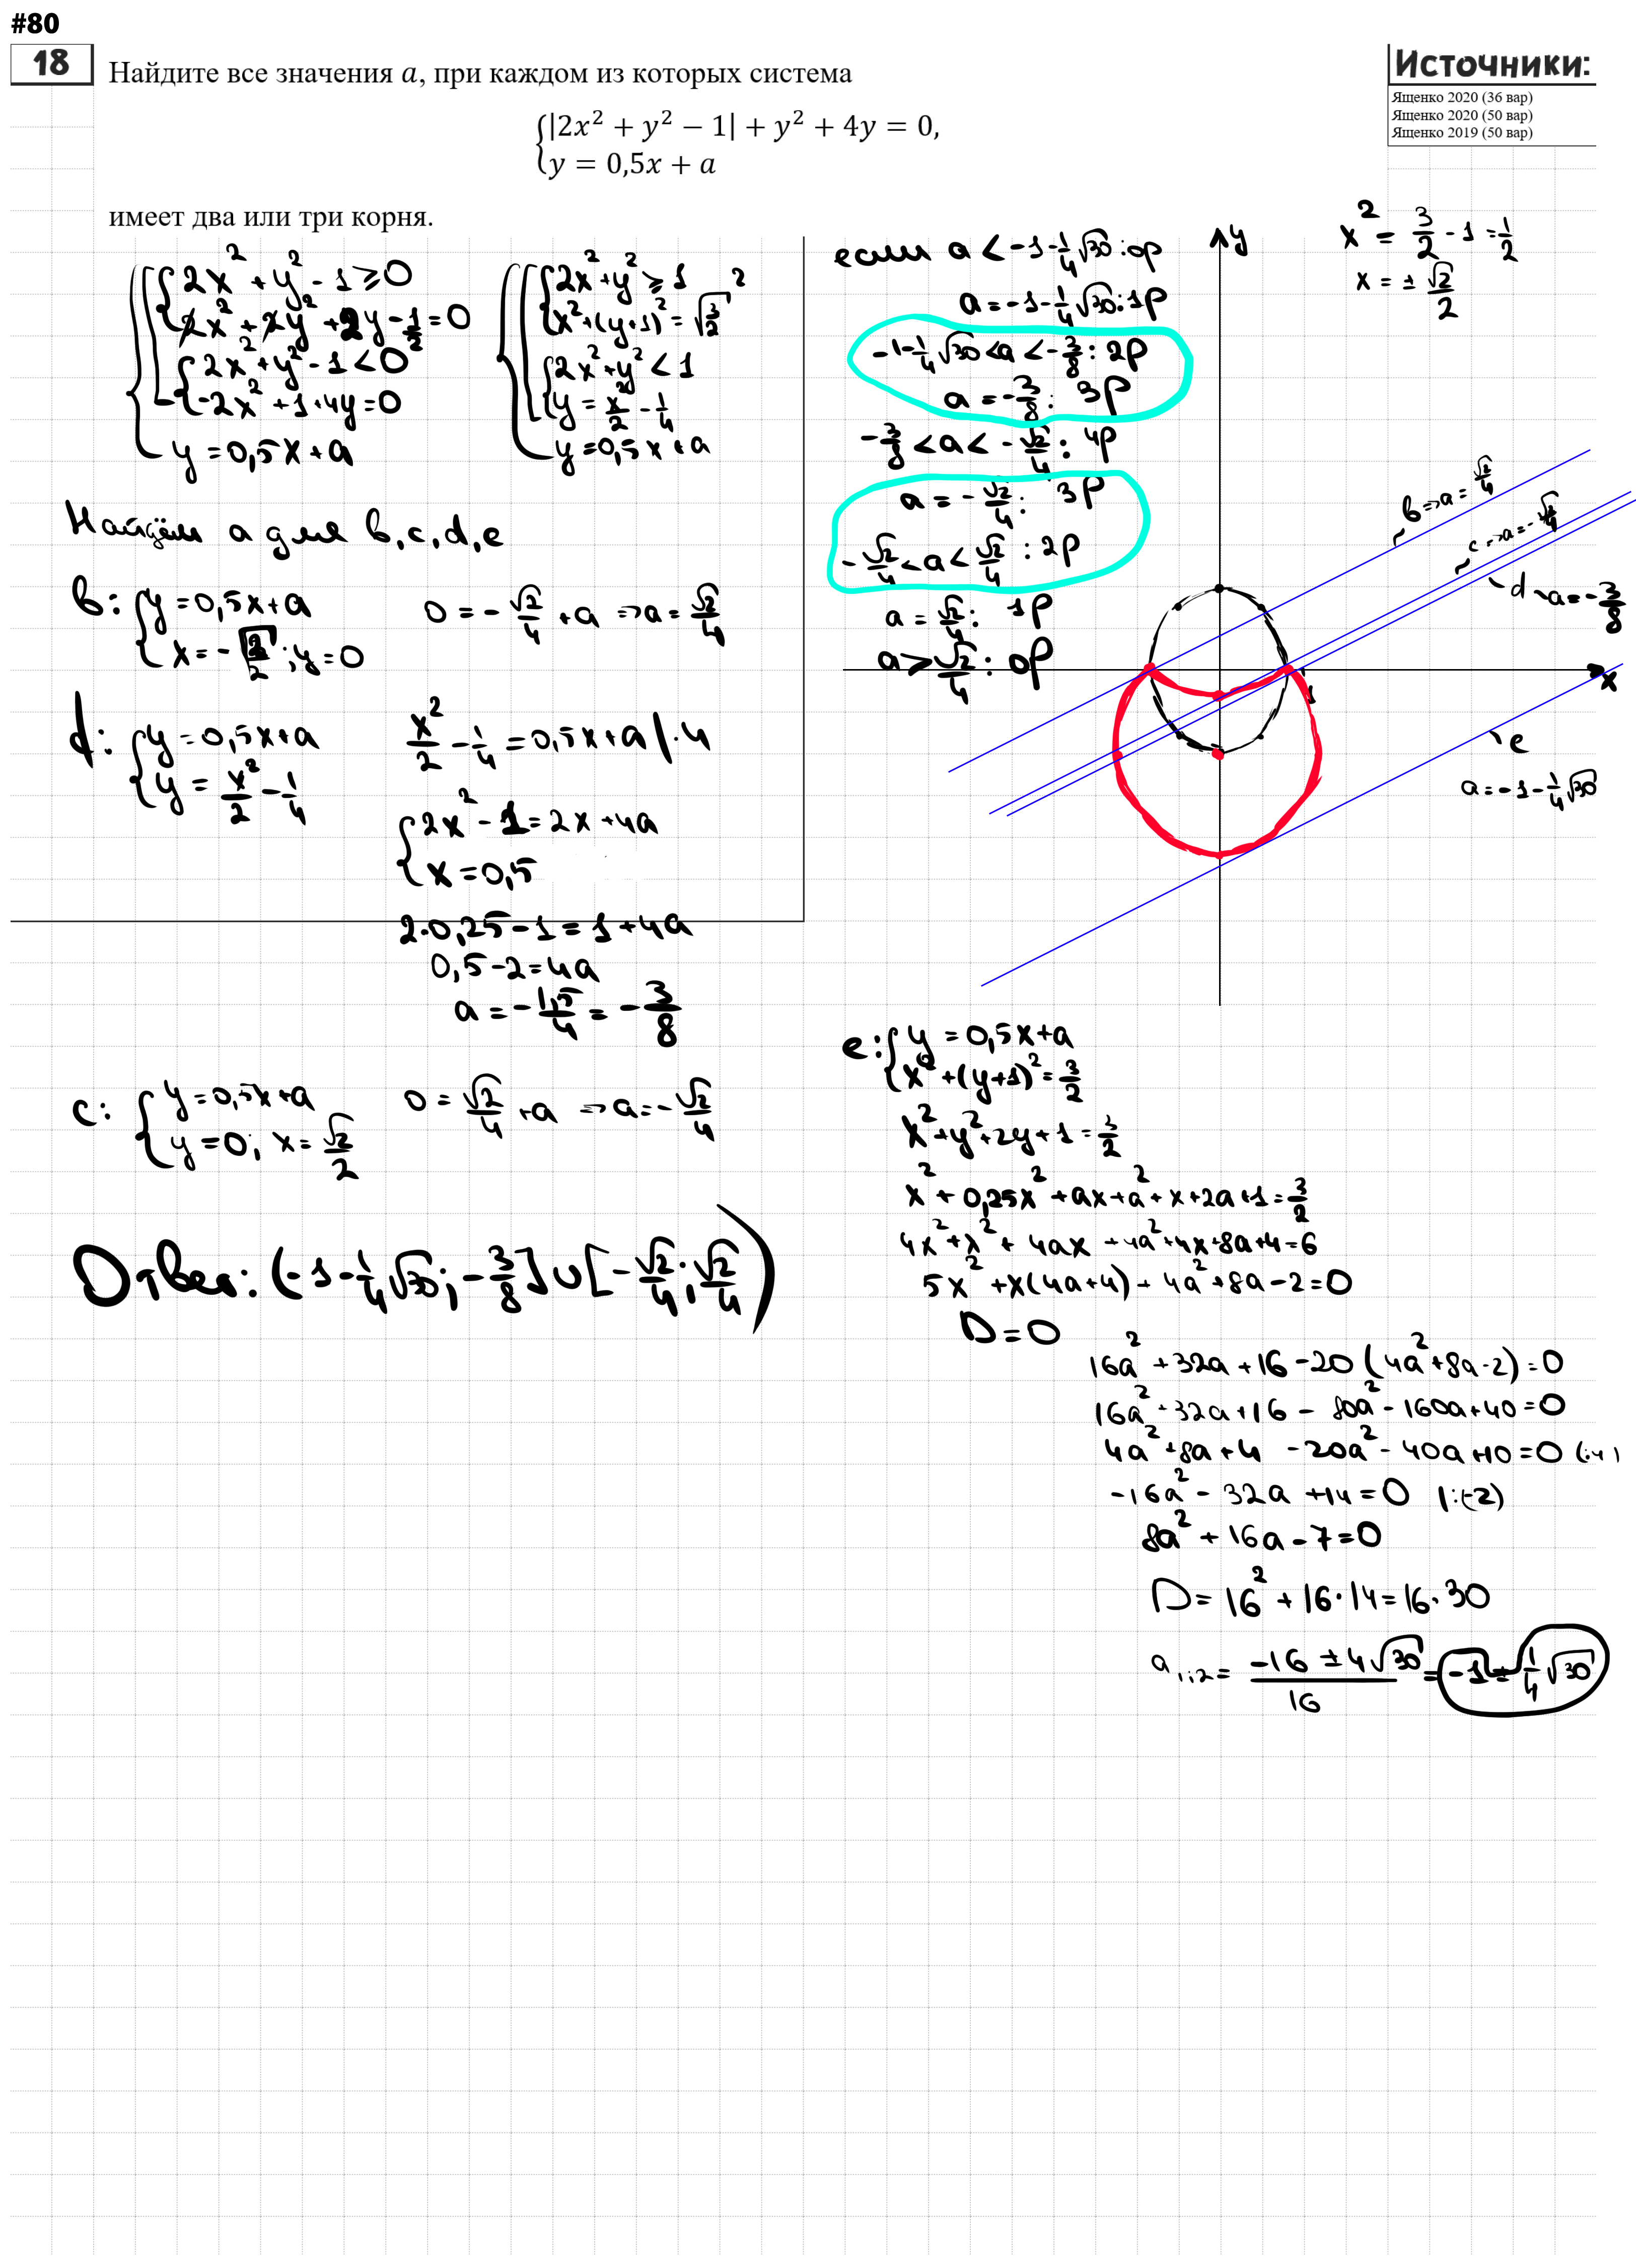 #80
18
Источники:
Найдите все значения a, при каждом из которых система
Ященко 2020 (36 вар)
Ященко 2020 (50 вар)
Ященко 2019 (50 вар)
{|2x² + y² − 1| + y² + 4y = 0,
{y = 0,5x + a
имеет два или три корня.
2x² + y² - 1 ≥ 0
2x² + 2y² + 2y - 1/2 = 0
2x² + y² - 1 < 0
-2x² + 1 + 4y = 0
y = 0,5x + a
2x² + y² ≥ 1
x² + (y+1)² = √(3/2)²
2x² + y² < 1
y = x²/2 - 1/4
y = 0,5x + a
Найдём a для b, c, d, e
b: {y = 0,5x + a
{x = -√2/2 ; y = 0
0 = -√2/4 + a ⇒ a = √2/4
d: {y = 0,5x + a
{y = x²/2 - 1/4
x²/2 - 1/4 = 0,5x + a |·4
{2x² - 1 = 2x + 4a
{x = 0,5
2·0,25 - 1 = 1 + 4a
0,5 - 2 = 4a
a = -1,5/4 = -3/8
c: {y = 0,5x + a
{y = 0; x = √2/2
0 = √2/4 + a ⇒ a = -√2/4
Ответ: (-1-1/4√30; -3/8] ∪ [-√2/4; √2/4)
если a < -1-1/4√30 : 0р
a = -1-1/4√30 : 1р
-1-1/4√30 < a < -3/8 : 2р
a = -3/8 : 3р
-3/8 < a < -√2/4 : 4р
a = -√2/4 : 3р
-√2/4 < a < √2/4 : 2р
a = √2/4 : 1р
a > √2/4 : 0р
y
x² = 3/2 - 1 = 1/2
x = ± √2/2
b ⇒ a = √2/4
c ⇒ a = -√2/4
d ⇒ a = -3/8
x
1
e
a = -1-1/4√30
e: {y = 0,5x + a
{x² + (y+1)² = 3/2
x² + y² + 2y + 1 = 3/2
x² + 0,25x² + ax + a² + x + 2a + 1 = 3/2
4x² + x² + 4ax + 4a² + 4x + 8a + 4 = 6
5x² + x(4a+4) + 4a² + 8a - 2 = 0
D = 0
16a² + 32a + 16 - 20(4a² + 8a - 2) = 0
16a² + 32a + 16 - 80a² - 160a + 40 = 0
4a² + 8a + 4 - 20a² - 40a + 10 = 0 (:4)
-16a² - 32a + 14 = 0 |:(-2)
8a² + 16a - 7 = 0
D = 16² + 16·14 = 16·30
a₁;₂ = (-16 ± 4√30)/16 = -1 ± 1/4√30